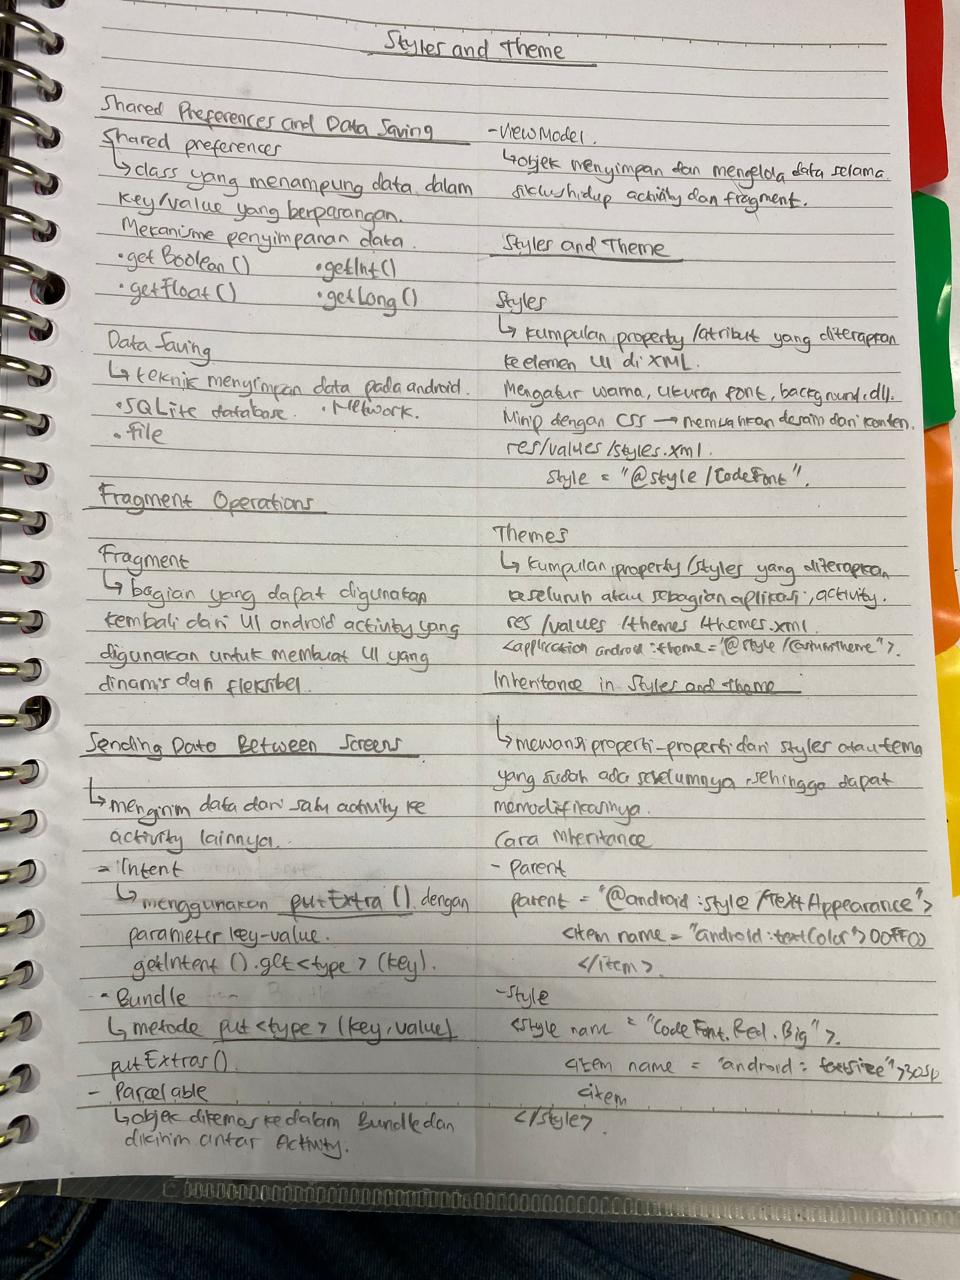 Styles and Theme
Shared Preferences and Data Saving
Shared preferences
↳ class yang menampung data dalam
key/value yang berpasangan.
Mekanisme penyimpanan data.
• getBoolean() • getInt()
• getFloat() • getLong()
Data Saving
↳ teknik menyimpan data pada android.
• SQLite database. • Network.
• file
Fragment Operations
Fragment
↳ bagian yang dapat digunakan
kembali dari UI android activity yang
digunakan untuk membuat UI yang
dinamis dan fleksibel.
Sending Data Between Screens
↳ mengirim data dari satu activity ke
activity lainnya.
- Intent
↳ menggunakan putExtra() dengan
parameter key-value.
getIntent().get<type>(key).
- Bundle
↳ metode put<type>(key, value)
putExtras()
- Parcelable
↳ objek dikemas kedalam Bundle dan
dikirim antar Activity.
- ViewModel.
↳ objek menyimpan dan mengelola data selama
siklus hidup activity dan fragment.
Styles and Theme
Styles
↳ kumpulan property/atribut yang diterapkan
ke elemen UI di XML.
Mengatur warna, ukuran font, background, dll.
Mirip dengan CSS → memisahkan desain dari konten.
res/values/styles.xml.
style = "@style/CodeFont".
Themes
↳ kumpulan property/styles yang diterapkan
keseluruh atau sebagian aplikasi, activity.
res/values/themes/themes.xml.
<application android:theme="@style/CustomTheme">.
Inheritance in Styles and Theme
↳ mewarisi properti-properti dari styles atau tema
yang sudah ada sebelumnya, sehingga dapat
memodifikasinya.
Cara Inheritance
- Parent
parent = "@android:style/TextAppearance">
<item name = "android:textColor">00FF00
</item>.
- Style
<style name = "CodeFont.Red.Big">.
<item name = "android:textSize">30sp
<item
</style>.